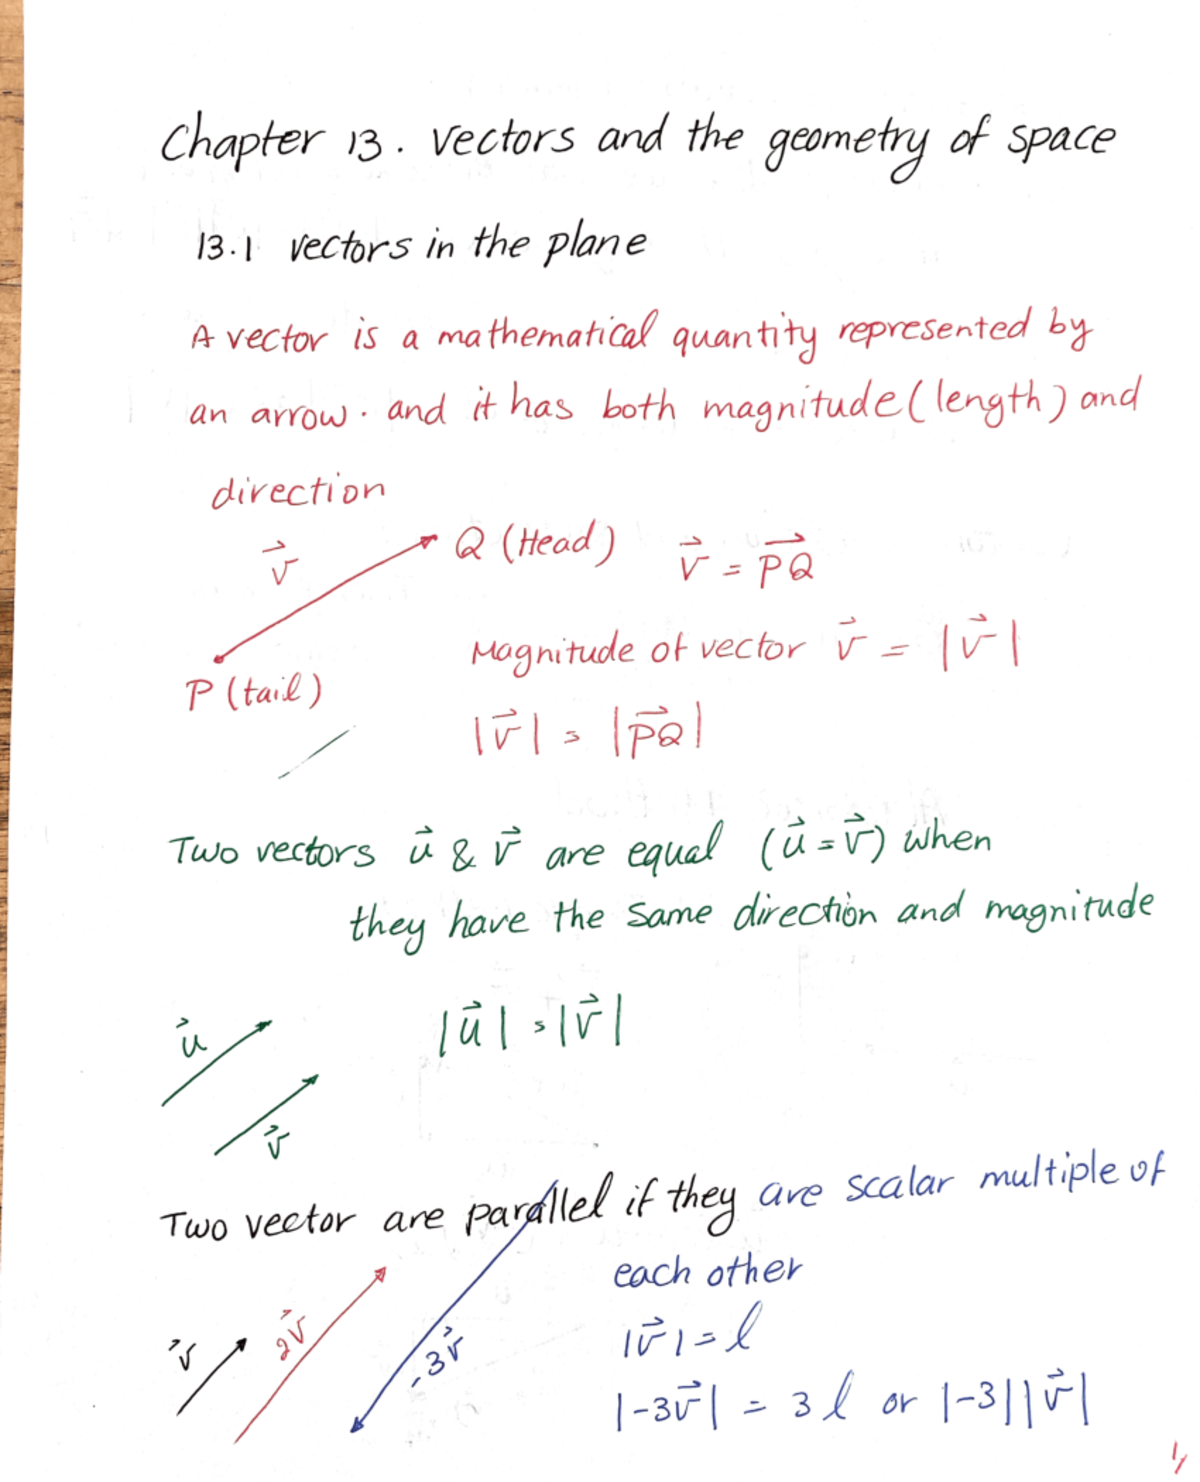 Chapter 13. Vectors and the geometry of space
13.1 vectors in the plane
A vector is a mathematical quantity represented by
an arrow. and it has both magnitude (length) and
direction
v⃗
Q (Head)
v⃗ = P⃗Q⃗
P (tail)
Magnitude of vector v⃗ = |v⃗|
|v⃗| = |P⃗Q⃗|
Two vectors u⃗ & v⃗ are equal (u⃗ = v⃗) when
they have the same direction and magnitude
u⃗
|u⃗| = |v⃗|
v⃗
Two vector are parallel if they are scalar multiple of
each other
v⃗
2v⃗
-3v⃗
|v⃗| = l
|-3v⃗| = 3l or |-3||v⃗|
1/